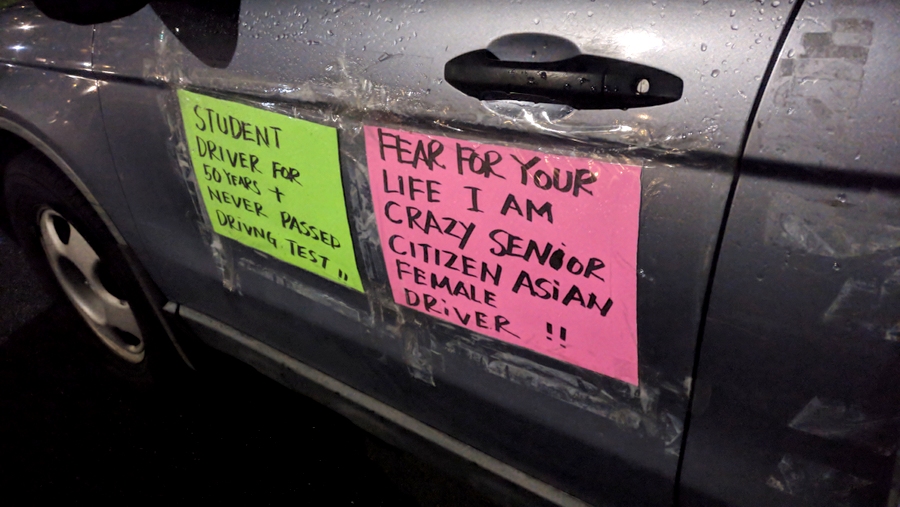 STUDENT
DRIVER FOR
50 YEARS +
NEVER PASSED
DRIVNG TEST !!
FEAR FOR YOUR
LIFE I AM
CRAZY SENIOR
CITIZEN ASIAN
FEMALE
DRIVER !!